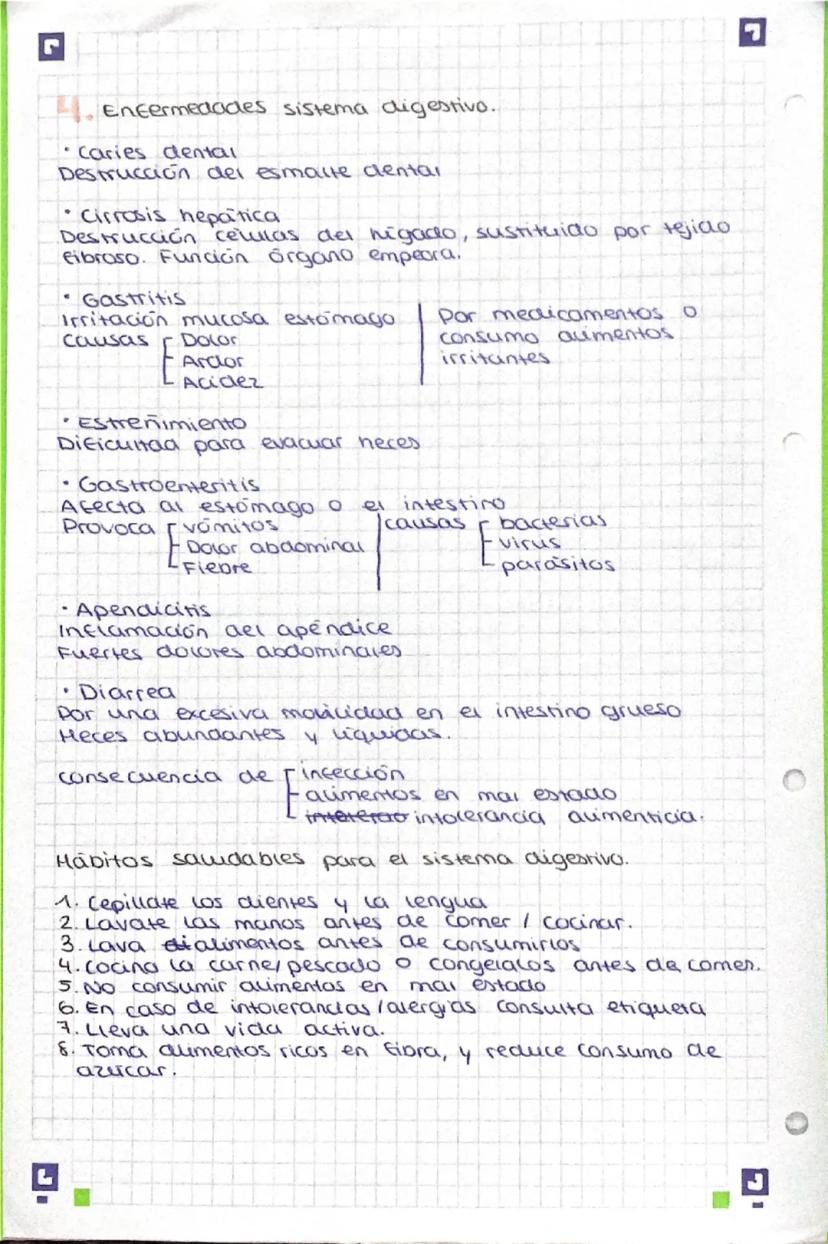 4. Enfermedades sistema digestivo.
· Caries dental
Destrucción del esmalte dental
· Cirrosis hepática
Destrucción células del hígado, sustituido por tejido
fibroso. Función órgano empeora.
· Gastritis
Irritación mucosa estómago
Causas Dolor
Ardor
Acidez
Por medicamentos o
consumo alimentos
irritantes
· Estreñimiento
Dificultad para evacuar heces
· Gastroenteritis
Afecta al estómago o el intestino
Provoca vómitos
Dolor abdominal
Fiebre
causas bacterias
virus
parásitos
· Apendicitis
Inflamación del apéndice
Fuertes dolores abdominales
· Diarrea
Por una excesiva movilidad en el intestino grueso
Heces abundantes y líquidas.
consecuencia de infección
alimentos en mal estado
intolerancia alimenticia.
Hábitos saludables para el sistema digestivo.
1. Cepillate los dientes y la lengua
2. Lavate las manos antes de comer / cocinar.
3. Lava alimentos antes de consumirlos
4. Cocina la carne/pescado o congelalos antes de comer.
5. No consumir alimentos en mal estado
6. En caso de intolerancias/alergias consulta etiqueta
7. Lleva una vida activa.
8. Toma alimentos ricos en fibra, y reduce consumo de
azúcar.